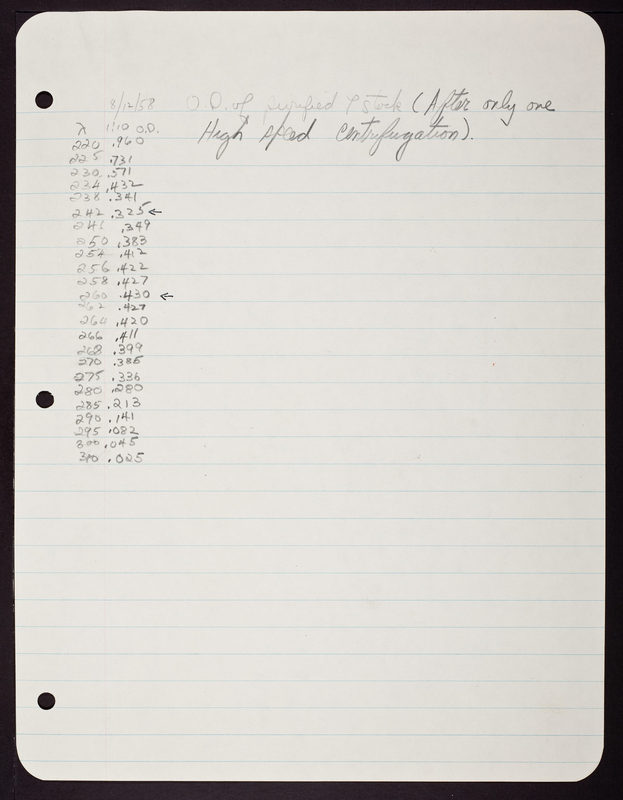 8/12/58 O.D. of purified P stock (After only one
High speed Centrifugation).
λ 1:10 O.D.
220 .960
225 .731
230 .571
234 .432
238 .341
242 .325 ←
246 .349
250 .383
254 .412
256 .422
258 .427
260 .430 ←
262 .427
264 .420
266 .411
268 .399
270 .385
275 .336
280 .280
285 .213
290 .141
295 .082
300 .045
310 .025